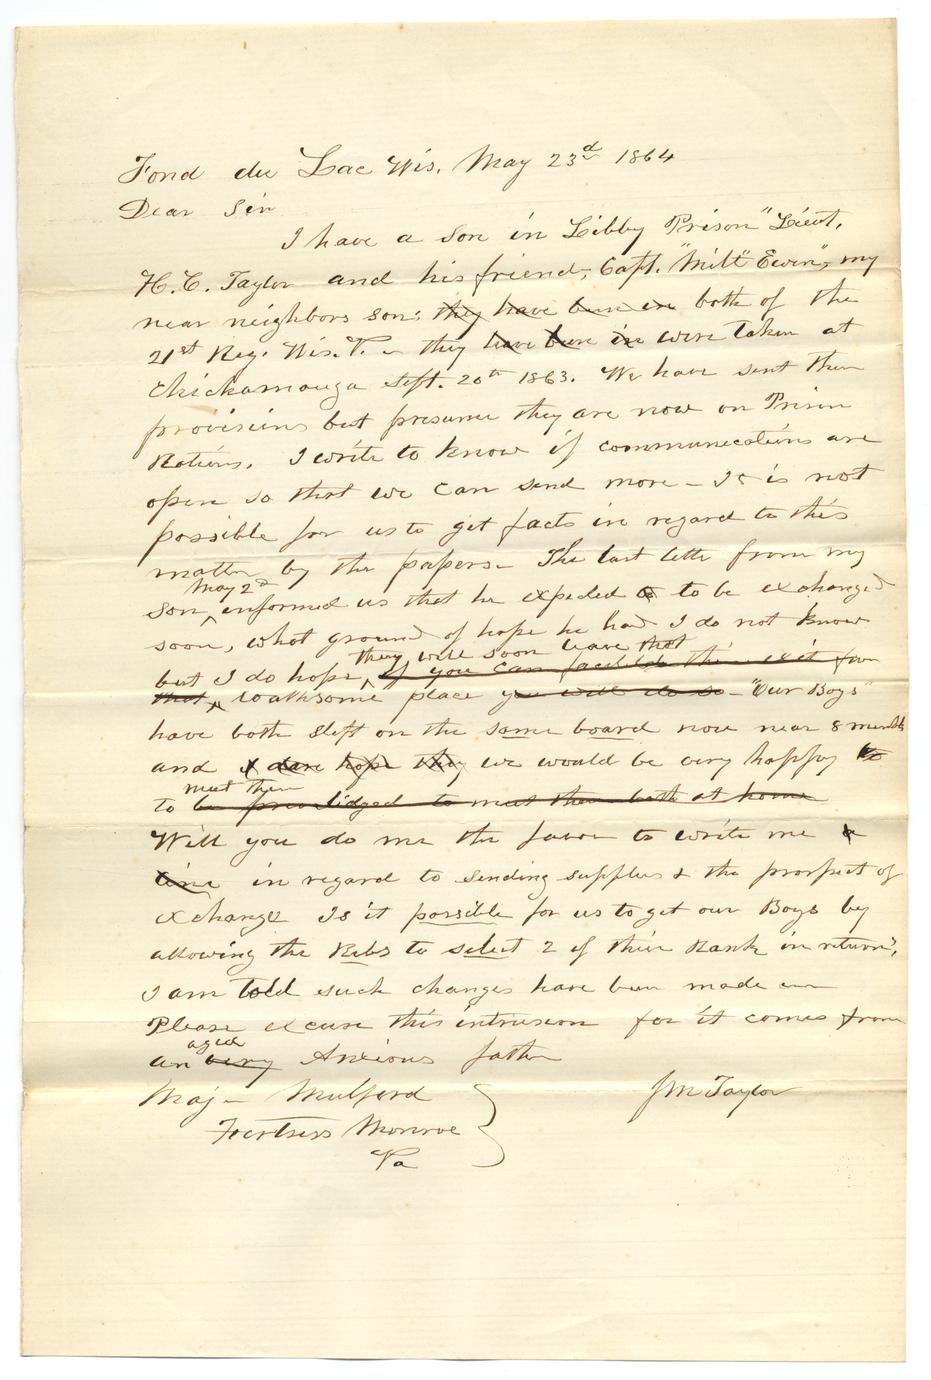 Fond du Lac Wis. May 23d 1864
Dear Sir
I have a son in Libby Prison "Lieut,
H. C. Taylor and his friend, Capt. "Milt" Ewen", my
near neighbors son: they have been in both of the
21st Reg. Wis. V. – they have been in were taken at
Chickamauga Sept. 20th 1863. We have sent them
provisions but presume they are now on Prison
Rations. I write to know if communications are
open so that we can send more – It is not
possible for us to get facts in regard to this
matter by the papers – The last lette from my
May 2d
son, informed us that he expected to be exchanged
soon, what ground of hope he had I do not know
they will soon leave that
but I do hope, If you can facilitate their exit from
that loathsome place you will do so – "Our Boys"
have both slept on the same board now near 8 months
and I dare hope they we would be very happy to
meet them
to be priviledged to meet them both at home
Will you do me the favor to write me a
line in regard to sending supplies & the prospect of
exchange Is it possible for us to get our Boys by
allowing the Rebs to select 2 of their Rank in return,
I am told such changes have been made
Please excuse this intrusion for it comes from
aged
an very Anxious father
Maj – Mulford
J M Taylor
Fortress Monroe
Va